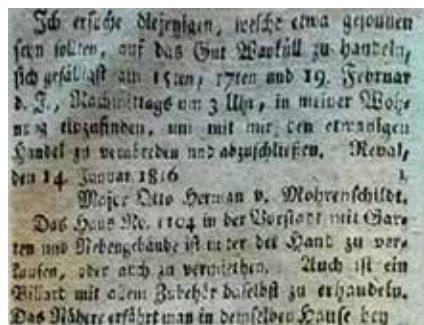 Ich ersuche diejenigen, welche etwa gesonnen
seyn sollten, auf das Gut Warküll zu handeln,
sich gefälligst am 15ten, 17ten und 19. Februar
d. J., Nachmittags um 3 Uhr, in meiner Woh-
nung einzufinden, um mit mir den etwanigen
Handel zu verabreden und abzuschließen. Reval,
den 14 Januar 1816 1.
Major Otto Herman v. Mohrenschildt.
Das Haus No. 1104 in der Vorstadt mit Gar-
ten und Nebengebäude ist unter der Hand zu ver-
kaufen, oder auch zu vermiethen. Auch ist ein
Billart mit allem Zubehör daselbst zu erhandeln.
Das Nähere erfährt man in demselben Hause bey